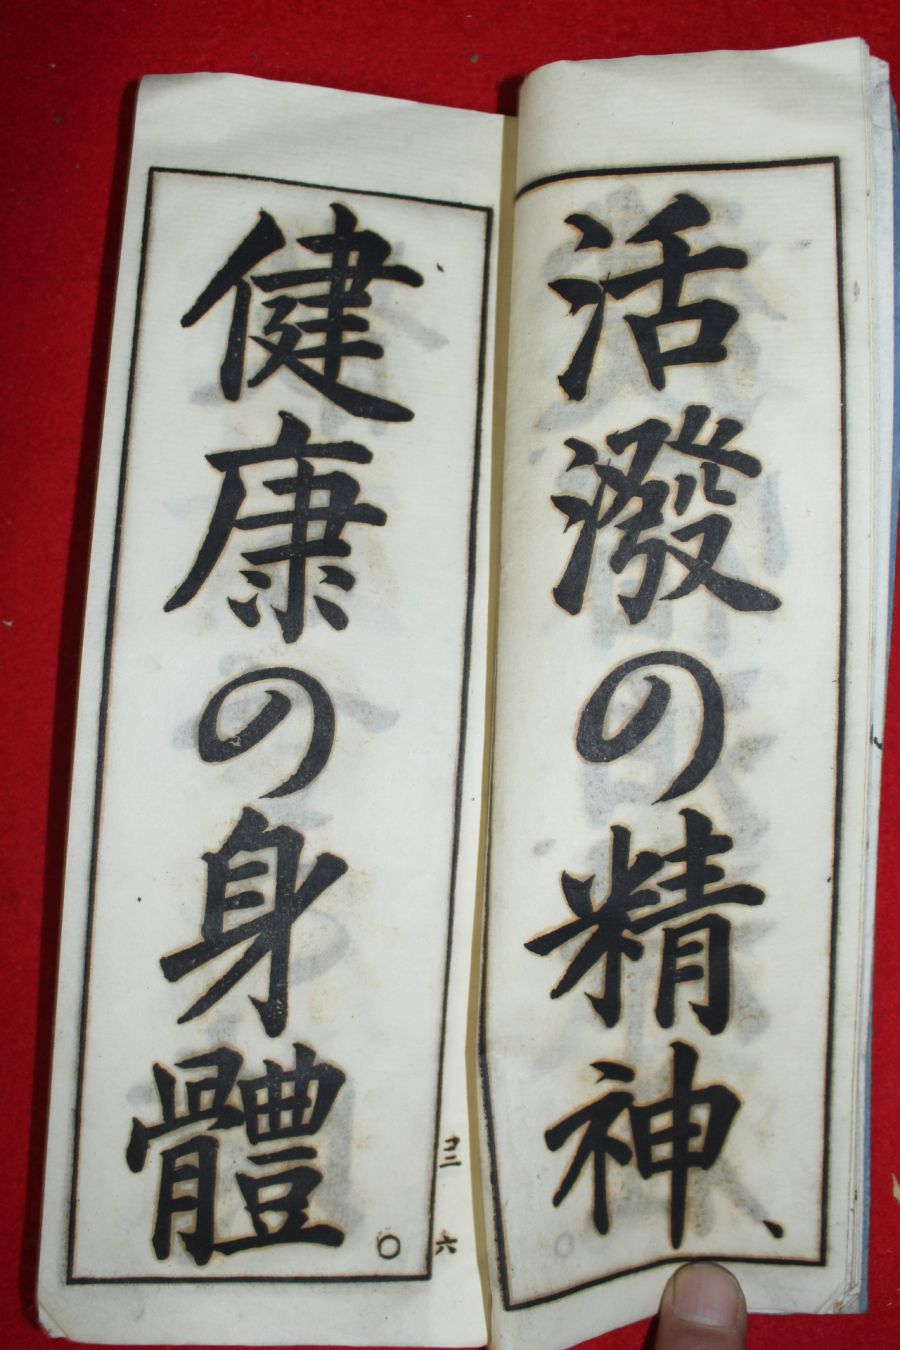 活潑の精神、
健康の身體
○
コニ 六